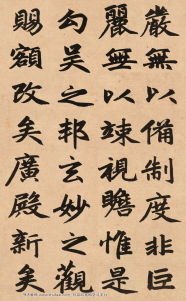 嚴無以備制度非巨
麗無以竦視瞻惟是
勾吳之邦玄妙之觀
賜額改矣廣殿新矣